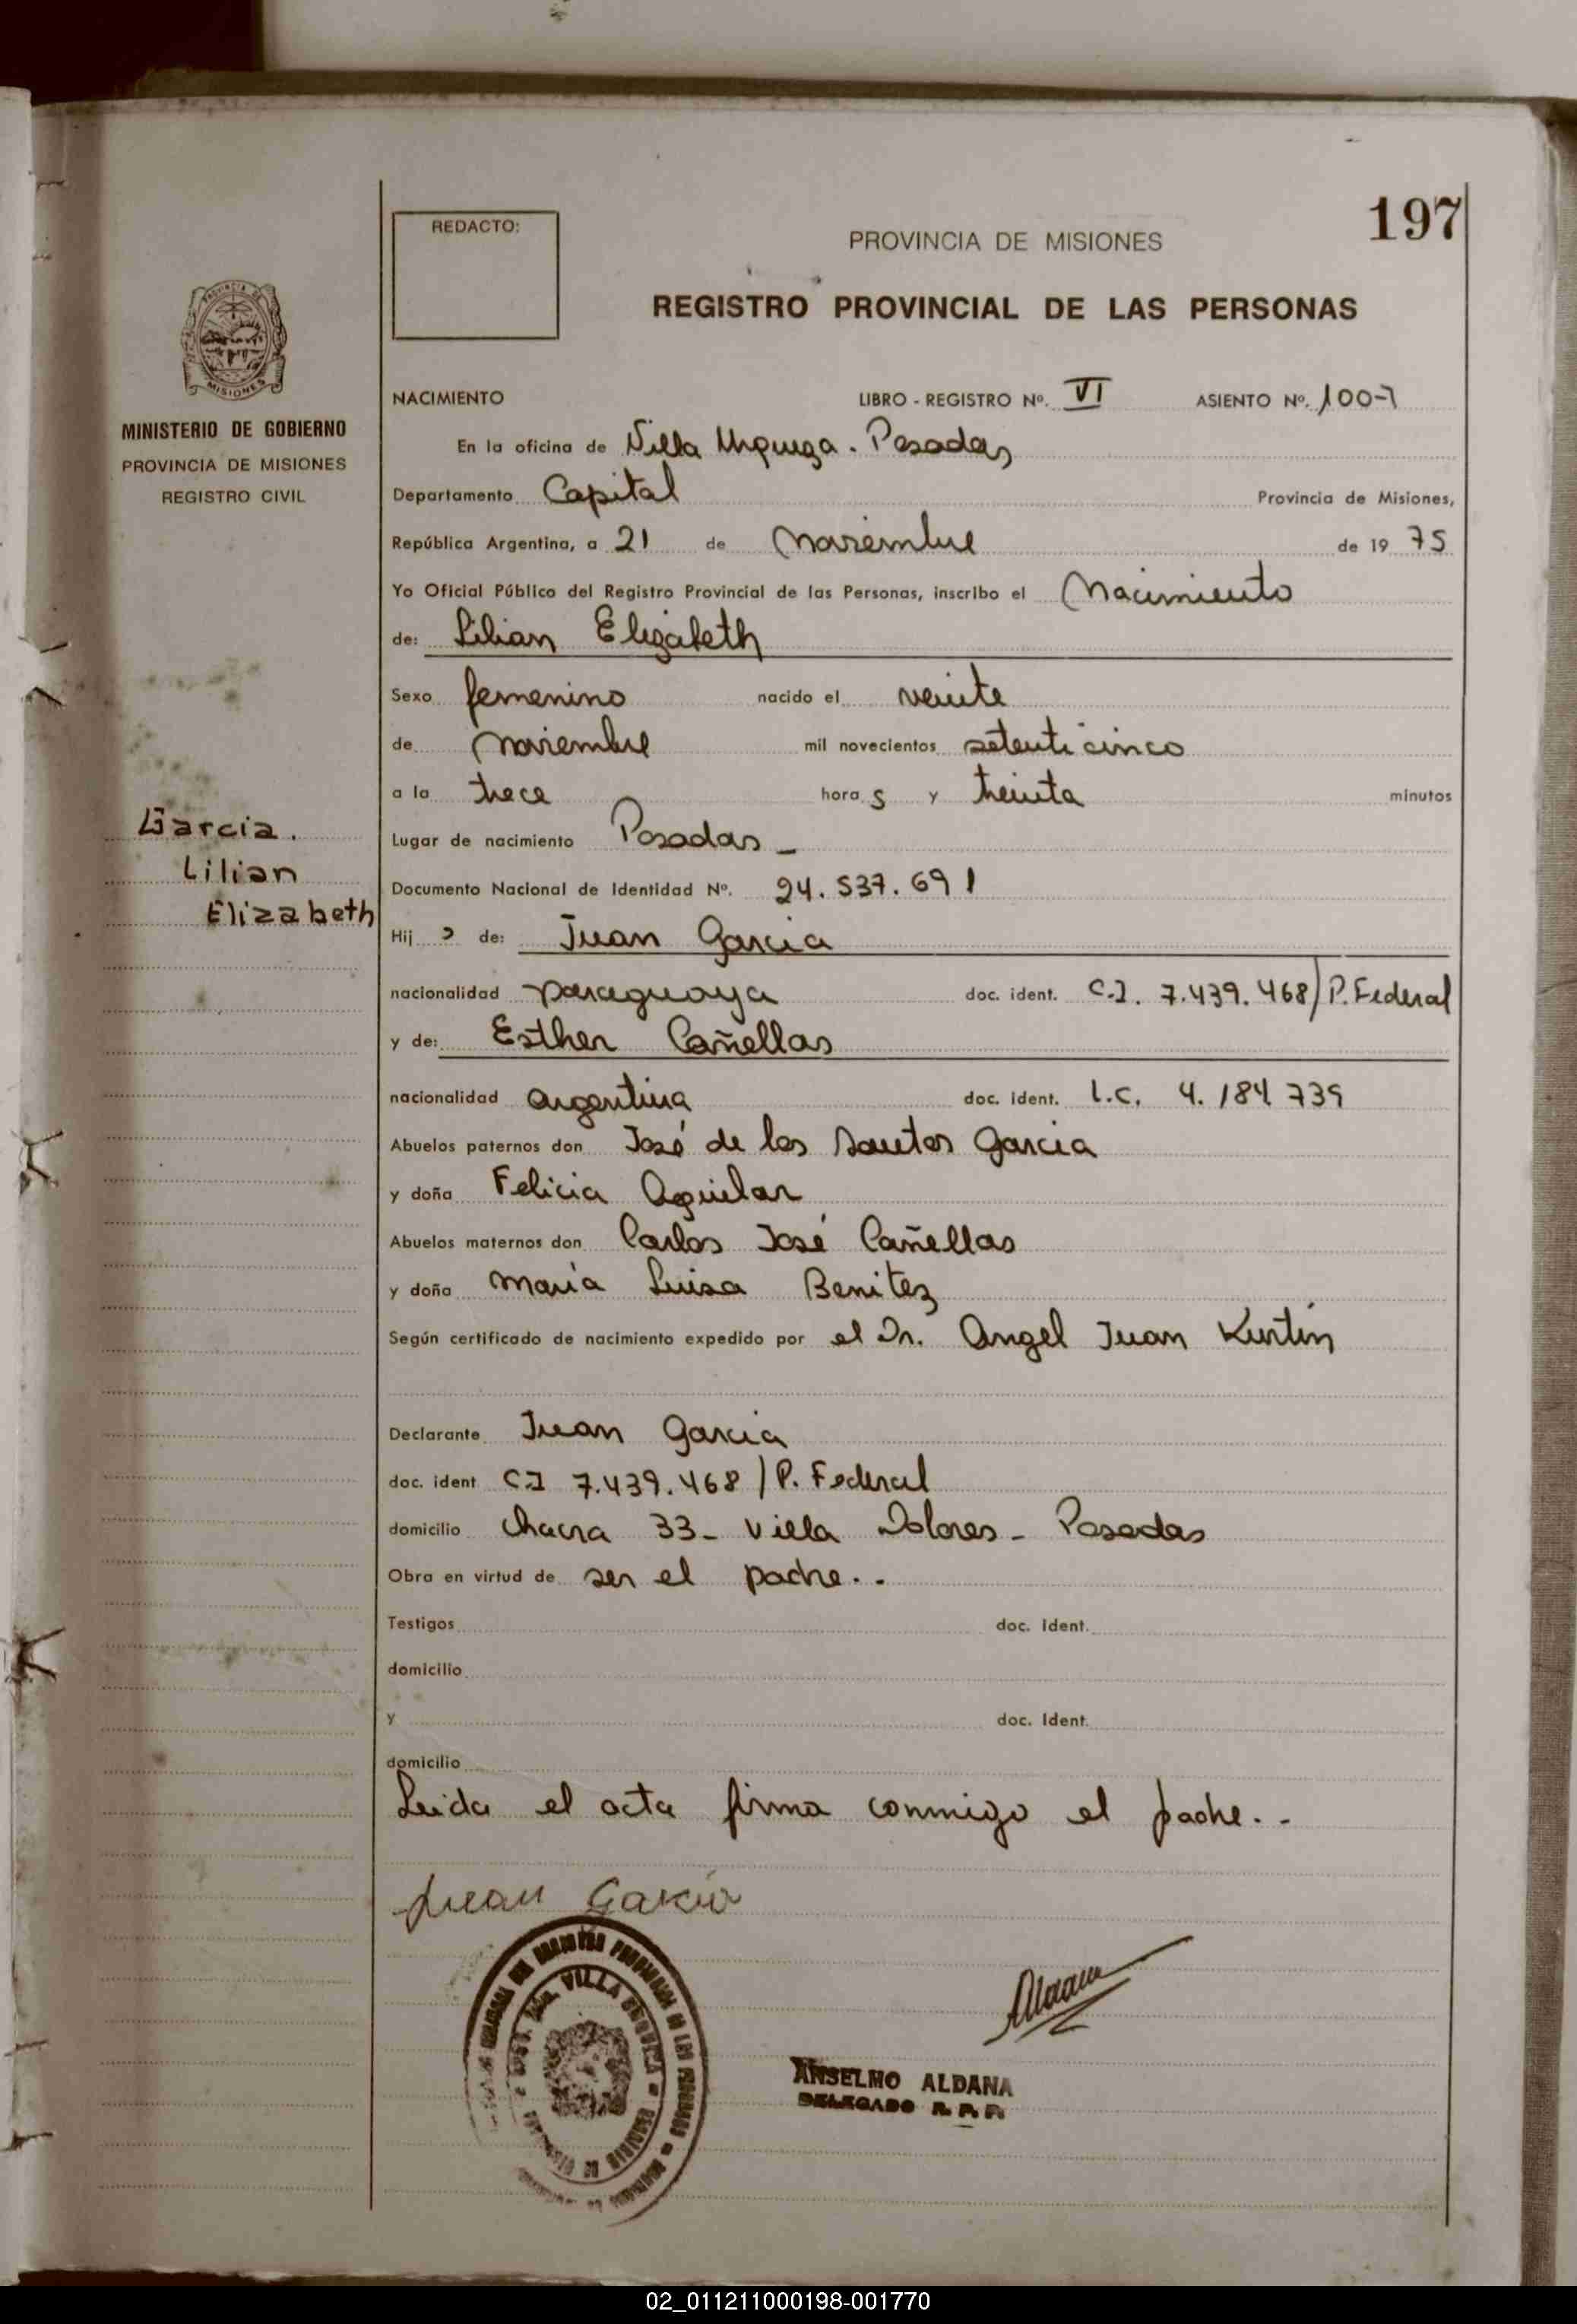 197
REDACTO:
PROVINCIA DE MISIONES
REGISTRO PROVINCIAL DE LAS PERSONAS
MISIONES
MINISTERIO DE GOBIERNO
PROVINCIA DE MISIONES
REGISTRO CIVIL
NACIMIENTO LIBRO - REGISTRO Nº. VI ASIENTO Nº. 1007
En la oficina de Villa Urquiza . Posadas
Departamento Capital Provincia de Misiones,
República Argentina, a 21 de Noviembre de 19 75
Yo Oficial Público del Registro Provincial de las Personas, inscribo el Nacimiento
de: Lilian Elizabeth
Sexo femenino nacido el veinte
de Noviembre mil novecientos setenticinco
a la trece hora s y treinta minutos
Garcia.
Lilian
Elizabeth
Lugar de nacimiento Posadas _
Documento Nacional de Identidad Nº. 24.537.691
Hij de: Juan Garcia
nacionalidad paraguaya doc. ident. C.I. 7.439.468/P.Federal
y de: Esther Cañellas
nacionalidad argentina doc. ident. L.C. 4.184.739
Abuelos paternos don José de los Santos Garcia
y doña Felicia Aguilar
Abuelos maternos don Carlos José Cañellas
y doña María Luisa Benitez
Según certificado de nacimiento expedido por el Dr. Angel Juan Kurtin
Declarante Juan Garcia
doc. ident. C.I 7.439.468/P. Federal
domicilio Chacra 33- Villa Dolores - Posadas
Obra en virtud de ser el padre. -
Testigos doc. Ident.
domicilio
y doc. Ident.
domicilio
Leida el acta firma conmigo el padre. -
Juan Garcia
VILLA URQUIZA
Aldana
ANSELMO ALDANA
DELEGADO R. P. P.
02_011211000198-001770